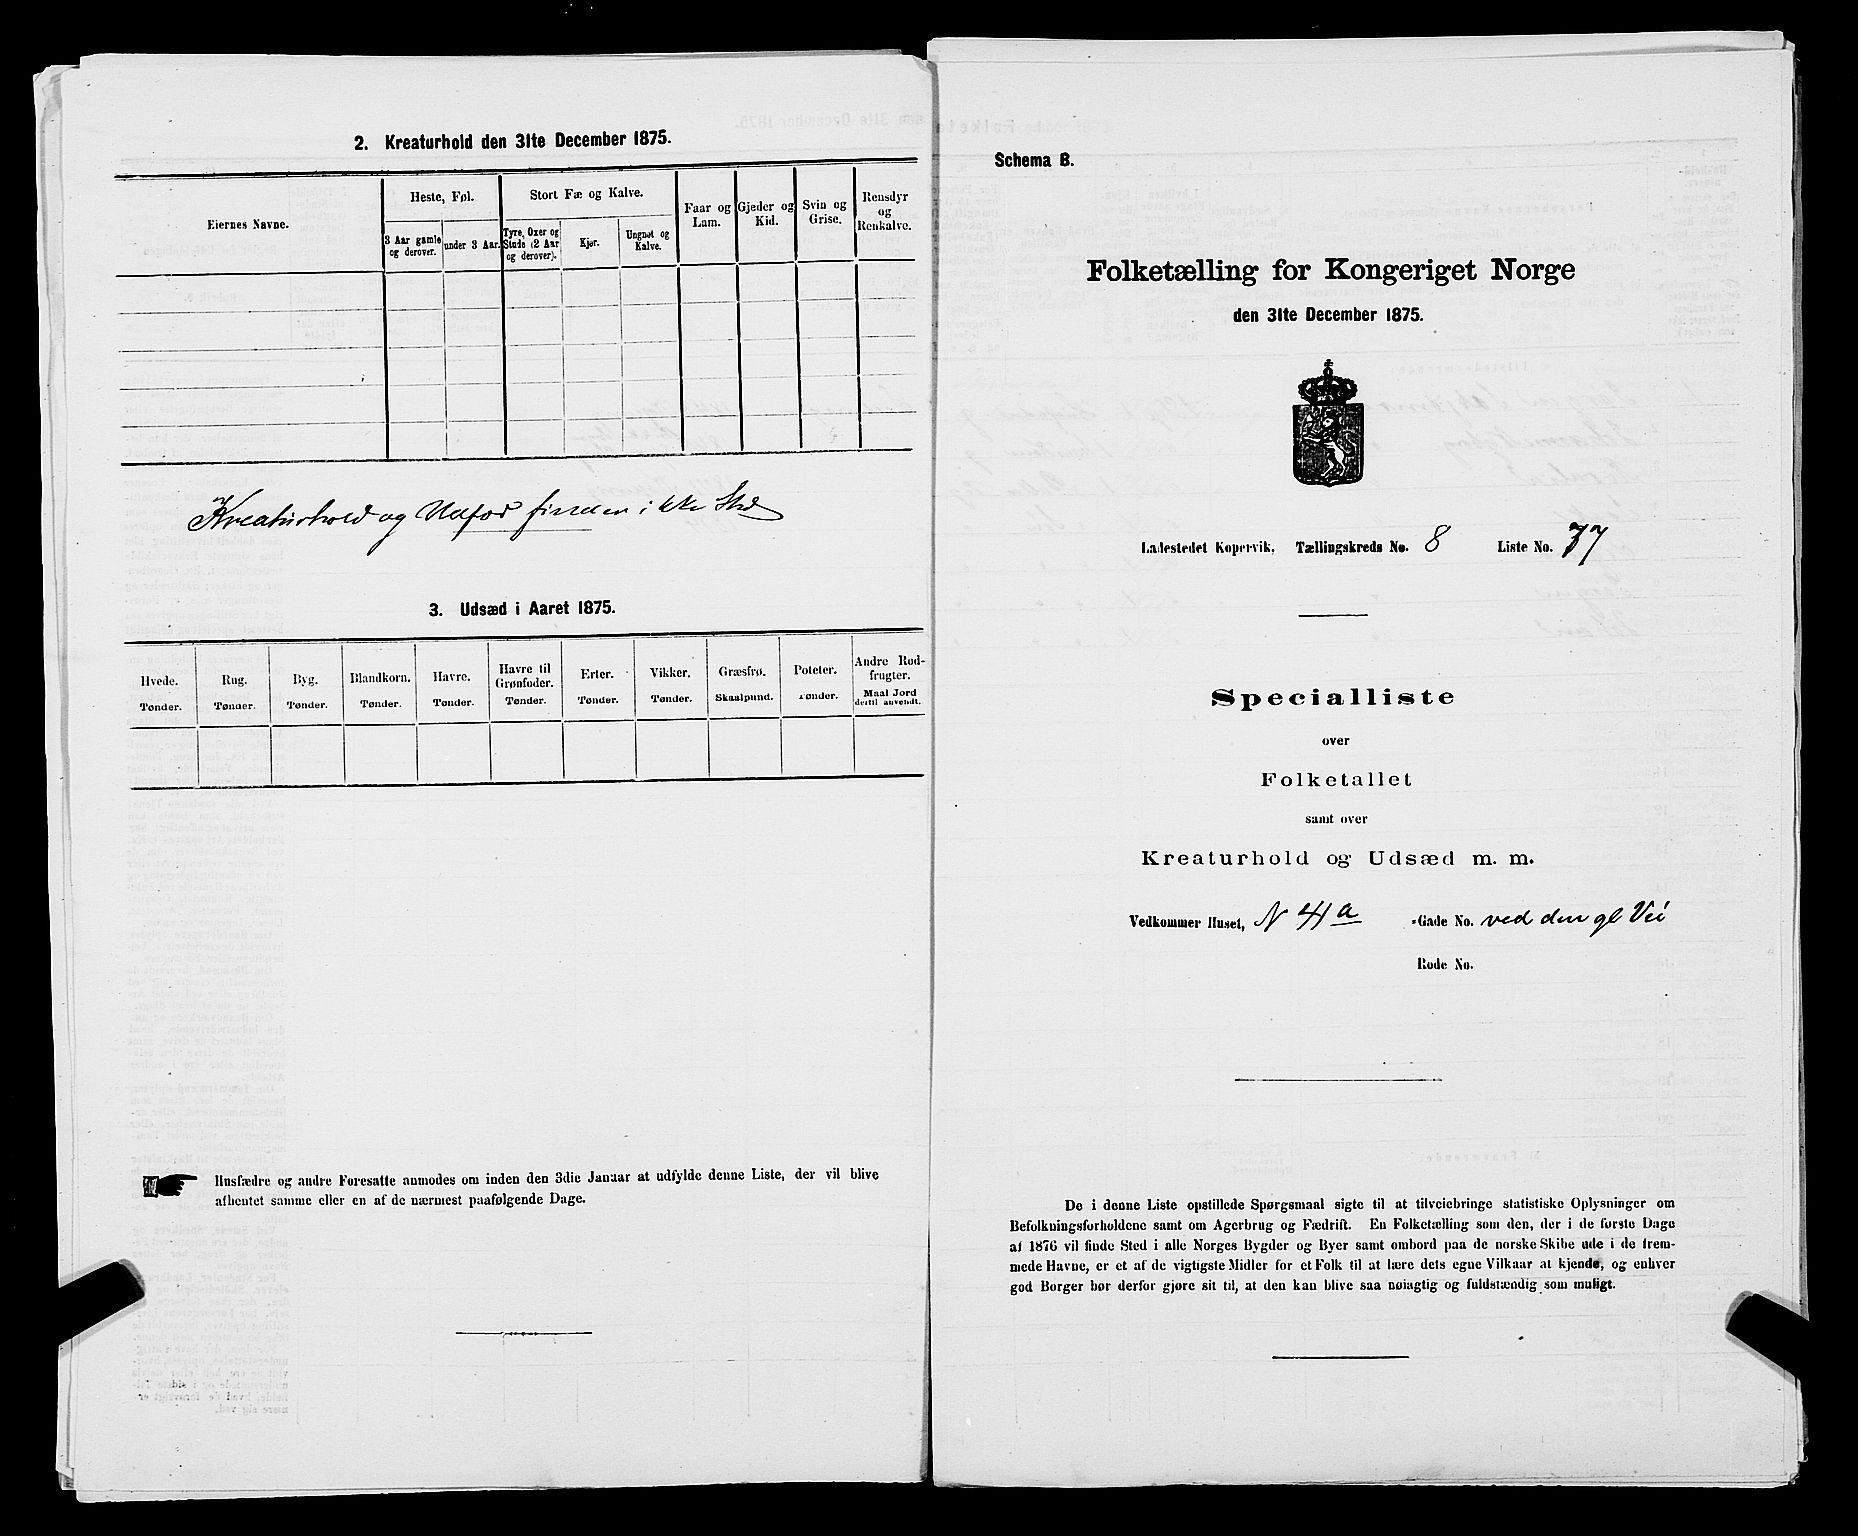 2. Kreaturhold den 31te December 1875.
Eiernes Navne.
Heste, Føl.
3 Aar gamle og derover.
under 3 Aar.
Stort Fæ og Kalve.
Tyre, Oxer og Stude (2 Aar og derover).
Kjør.
Ungnøt og Kalve.
Faar og Lam.
Gjeder og Kid.
Svin og Grise.
Rensdyr og Renkalve.
Kreaturhold og Udfør finder ikke Sted
3. Udsæd i Aaret 1875.
Hvede. Tønder.
Rug. Tønder.
Byg. Tønder.
Blandkorn. Tønder.
Havre. Tønder.
Havre til Grønfoder. Tønder.
Erter. Tønder.
Vikker. Tønder.
Græsfrø. Skaalpund.
Poteter. Tønder.
Andre Rodfrugter. Maal Jord dertil anvendt.
Husfædre og andre Foresatte anmodes om inden den 3die Januar at udfylde denne Liste, der vil blive
afhentet samme eller en af de nærmest paafølgende Dage.
Schema B.
Folketælling for Kongeriget Norge
den 31te December 1875.
Ladestedet Kopervik. Tællingskreds No. 8 Liste No. 77
Specialliste
over
Folketallet
samt over
Kreaturhold og Udsæd m. m.
Vedkommer Huset, N 41a -Gade No. ved den gl Vei
Rode No.
De i denne Liste opstillede Spørgsmaal sigte til at tilveiebringe statistiske Oplysninger om
Befolkningsforholdene samt om Agerbrug og Fædrift. En Folketælling som den, der i de første Dage
af 1876 vil finde Sted i alle Norges Bygder og Byer samt ombord paa de norske Skibe ude i de frem-
mede Havne, er et af de vigtigste Midler for et Folk til at lære dets egne Vilkaar at kjende, og enhver
god Borger bør derfor gjøre sit til, at den kan blive saa nøiagtig og fuldstændig som muligt.